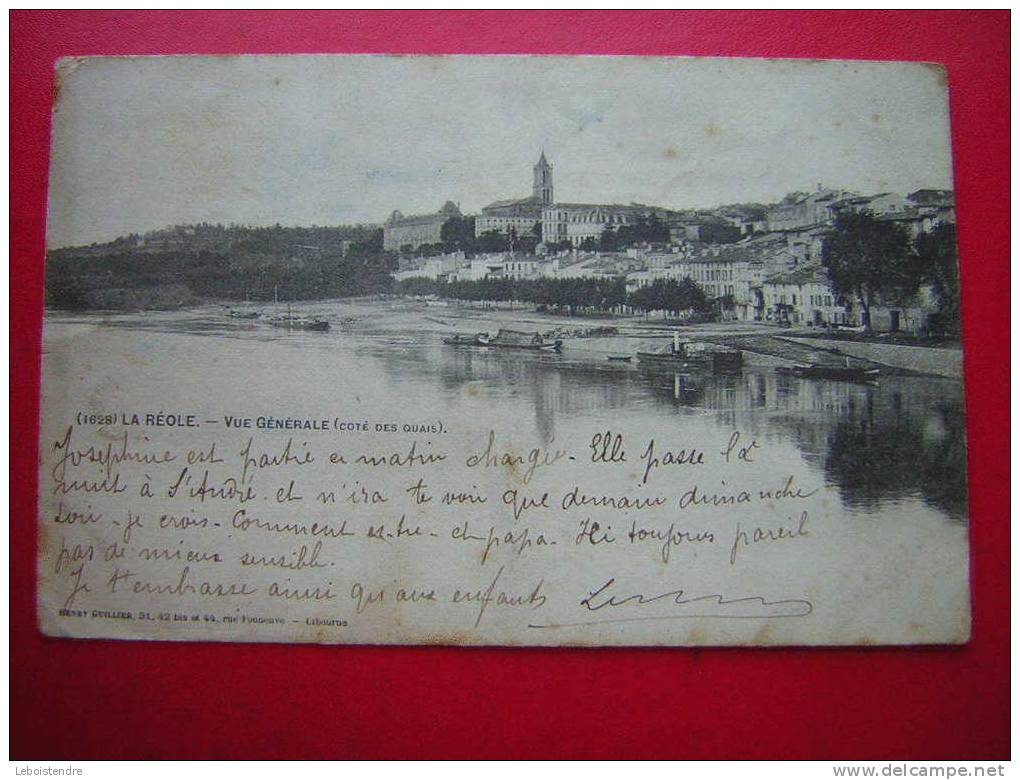 (1628) LA RÉOLE. — VUE GÉNÉRALE (COTÉ DES QUAIS).
Josephine est partie ce matin chargée. Elle passe la
nuit à St André et n'ira te voir que demain dimanche
soir - je crois - Comment es-tu - et papa. Ili toujours pareil
pas de mieux sensible.
Je t'embrasse ainsi qu'aux enfants
HENRY GUILLIER, 31, 42 bis et 44, rue Fonneuve — Libourne
Leboistendre
www.delcampe.net